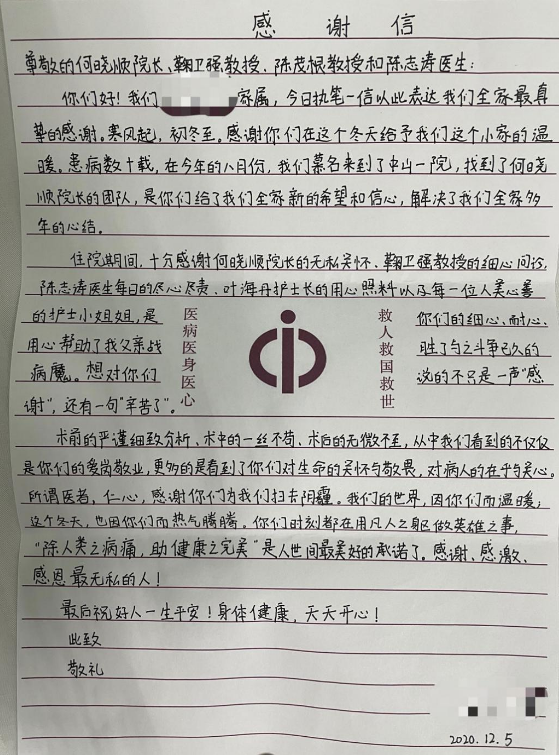 感谢信
尊敬的何晓顺院长、鞠卫强教授、陈茂根教授和陈志涛医生:
你们好!我们
家属,今日执笔一信以此表达我们全家最真
挚的感谢。寒风起,初冬至。感谢你们在这个冬天给予我们这个小家的温
暖。患病数十载,在今年的八月份,我们慕名来到了中山一院,找到了何晓
顺院长的团队,是你们给了我们全家新的希望和信心,解决了我们全家多
年的心结。
住院期间,十分感谢何晓顺院长的无私关怀、鞠卫强教授的细心问诊,
陈志涛医生每日的尽心尽责、叶海丹护士长的用心照料以及每一位人美心善
的护士小姐姐,是
你们的细心、耐心、
用心帮助了我父亲战
胜了与之斗争已久的
病魔。想对你们
说的不只是一声“感
谢”,还有一句“辛苦了”。
医病医身医心
救人救国救世
术前的严谨细致分析、术中的一丝不苟、术后的无微不至,从中我们看到的不仅仅
是你们的爱岗敬业,更多的是看到了你们对生命的关怀与敬畏,对病人的在乎与关心。
所谓医者,仁心,感谢你们为我们扫去阴霾。我们的世界,因你们而温暖;
这个冬天,也因你们而热气腾腾。你们时刻都在用凡人之身躯做英雄之事,
“除人类之病痛,助健康之完美”是人世间最美好的承诺了。感谢、感激、
感恩最无私的人!
最后祝好人一生平安!身体健康,天天开心!
此致
敬礼
2020.12.5